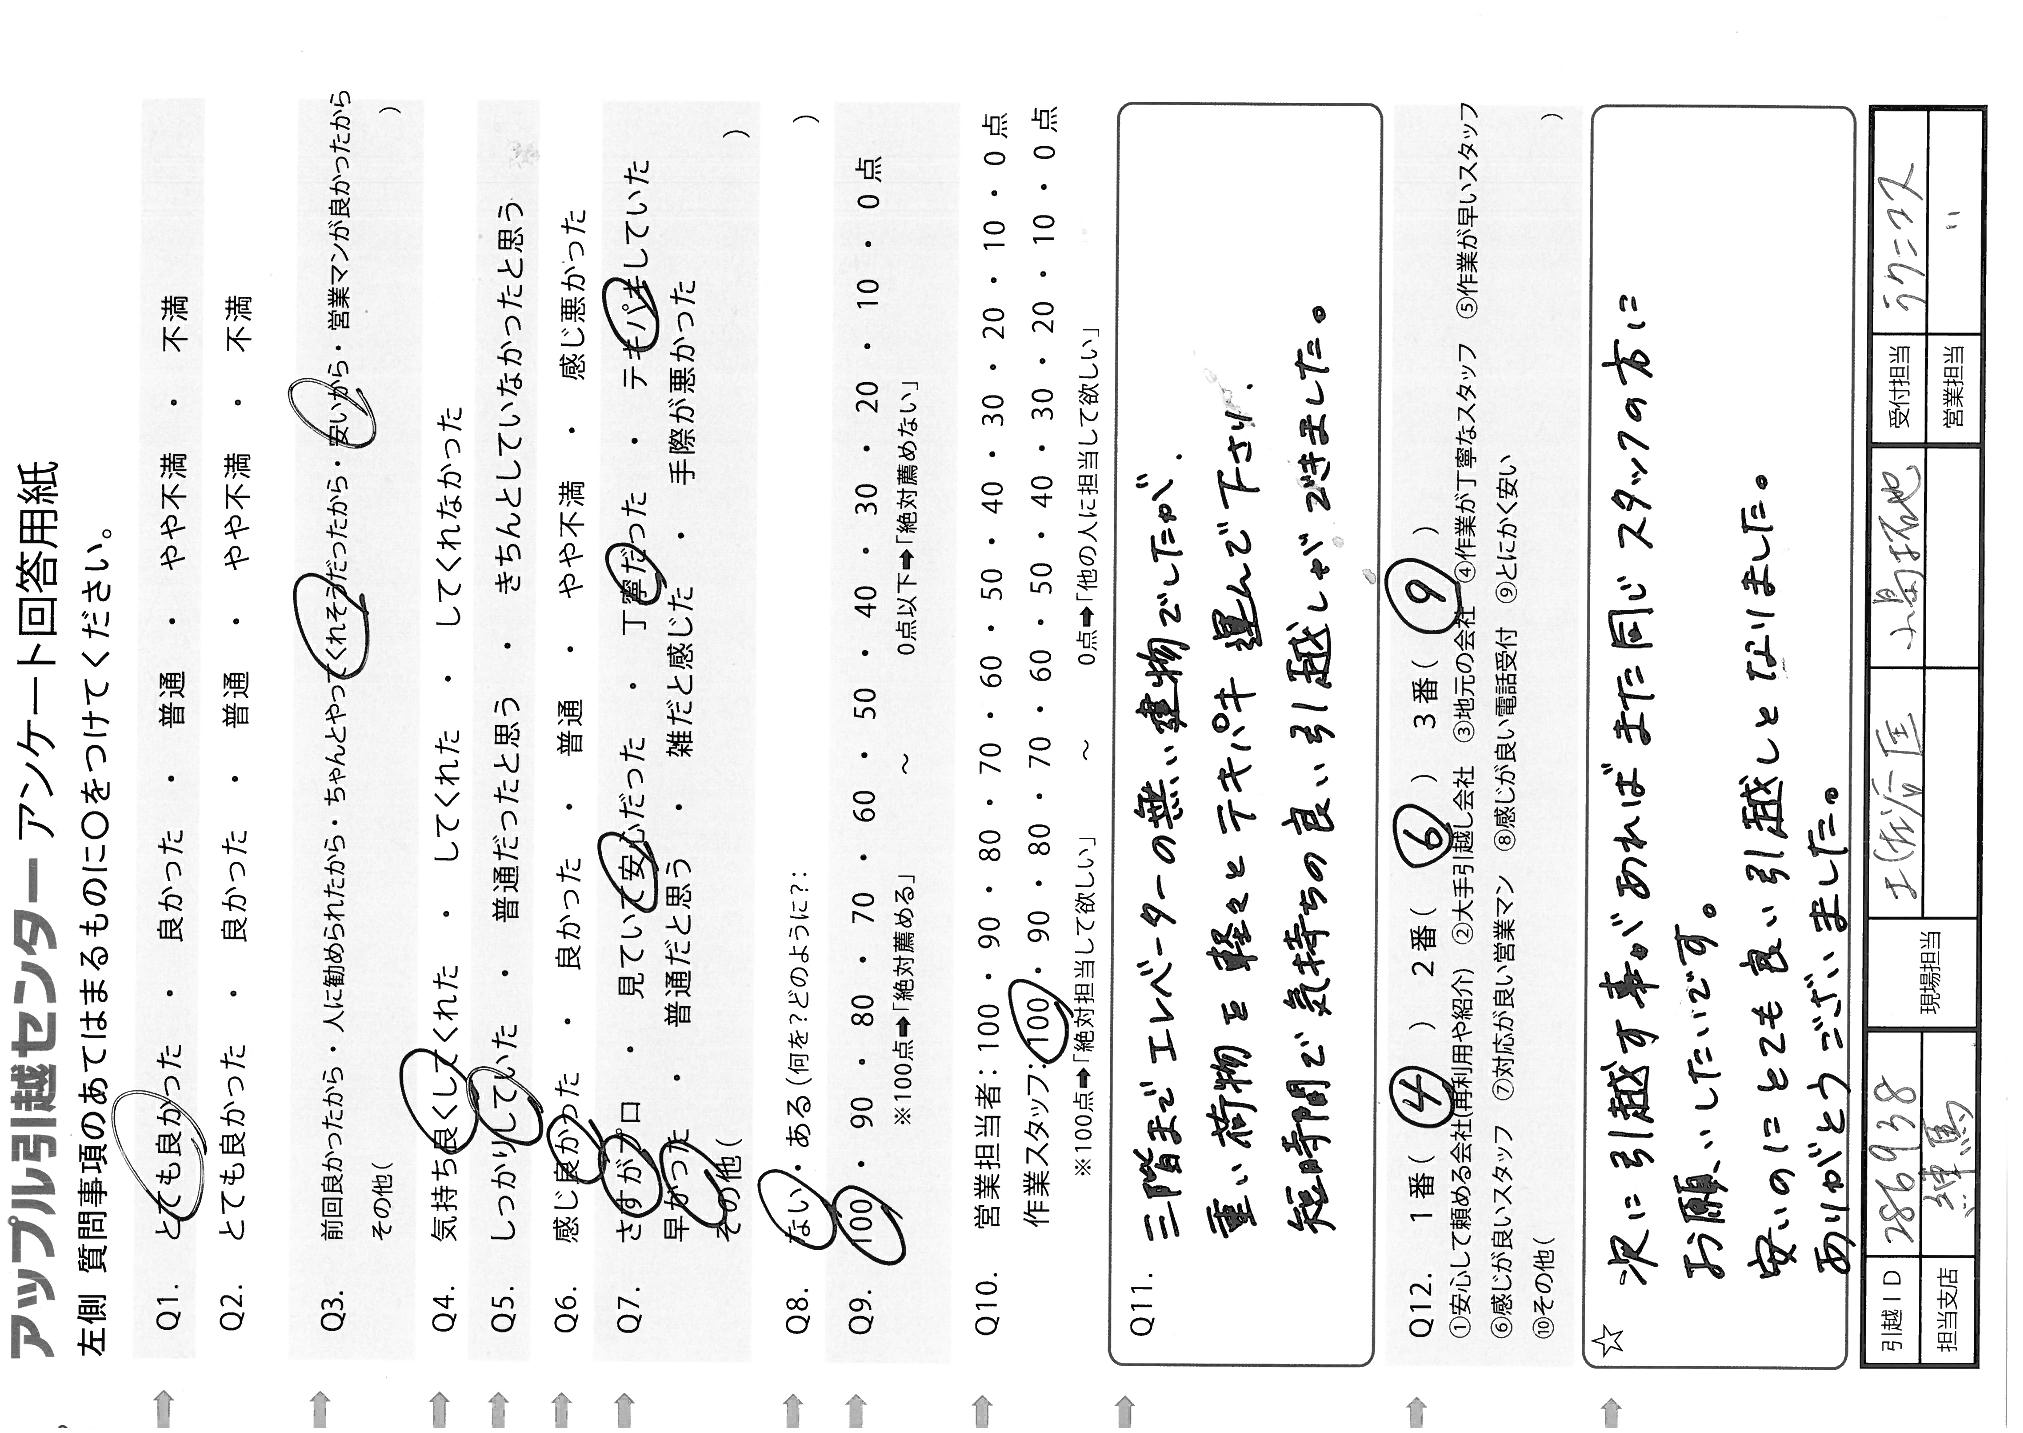 アップル引越センター アンケート回答用紙
左側 質問事項のあてはまるものに○をつけてください。
Q1. とても良かった ・ 良かった ・ 普通 ・ やや不満 ・ 不満
Q2. とても良かった ・ 良かった ・ 普通 ・ やや不満 ・ 不満
Q3. 前回良かったから・人に勧められたから・ちゃんとやってくれそうだったから・安いから・営業マンが良かったから
その他( )
Q4. 気持ち良くしてくれた ・ してくれた ・ してくれなかった
Q5. しっかりしていた ・ 普通だったと思う ・ きちんとしていなかったと思う
Q6. 感じ良かった ・ 良かった ・ 普通 ・ やや不満 ・ 感じ悪かった
Q7. さすがプロ ・ 見ていて安心だった ・ 丁寧だった ・ テキパキしていた
早かった ・ 普通だと思う ・ 雑だと感じた ・ 手際が悪かった
その他( )
Q8. ない・ある(何を?どのように?: )
Q9. 100 ・ 90 ・ 80 ・ 70 ・ 60 ・ 50 ・ 40 ・ 30 ・ 20 ・ 10 ・ 0 点
※100点➡「絶対薦める」 ～ 0点以下➡「絶対薦めない」
Q10. 営業担当者：100 ・ 90 ・ 80 ・ 70 ・ 60 ・ 50 ・ 40 ・ 30 ・ 20 ・ 10 ・ 0 点
作業スタッフ：100 ・ 90 ・ 80 ・ 70 ・ 60 ・ 50 ・ 40 ・ 30 ・ 20 ・ 10 ・ 0 点
※100点➡「絶対担当して欲しい」 ～ 0点➡「他の人に担当して欲しい」
Q11. 三階までエレベーターの無い建物でしたが、
重い荷物を軽々とテキパキ運んで下さり、
短時間で気持ちの良い引越しができました。
Q12. 1番( 4 ) 2番( 6 ) 3番( 9 )
①安心して頼める会社(再利用や紹介) ②大手引越し会社 ③地元の会社 ④作業が丁寧なスタッフ ⑤作業が早いスタッフ
⑥感じが良いスタッフ ⑦対応が良い営業マン ⑧感じが良い電話受付 ⑨とにかく安い
⑩その他( )
☆
次に引越す事があればまた同じスタッフの方に
お願いしたいです。
安いのにとても良い引越しとなりました。
ありがとうございました。
引越ID 2869938 現場担当 受付担当 ラクニコス
担当支店 練馬 営業担当 〃